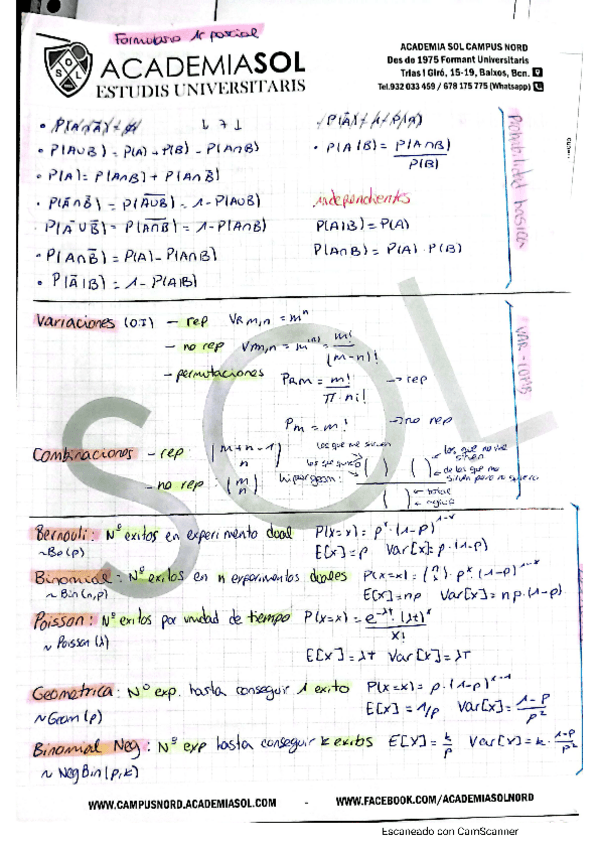 Formulario 1r parcial
ACADEMIASOL
ESTUDIS UNIVERSITARIS
ACADEMIA SOL CAMPUS NORD
Des de 1975 Formant Universitaris
Trias I Giró, 15-19, Baixos, Bcn.
Tel.932 033 459 / 678 175 775 (Whatsapp)
• P(A∪B) = P(A) + P(B) - P(A∩B)
• P(A|B) = P(A∩B) / P(B)
• P(A) = P(A∩B) + P(A∩B̄)
• P(Ā∩B̄) = P(A̅∪̅B̅) = 1 - P(A∪B)
independientes
P(Ā∪B̄) = P(A̅∩̅B̅) = 1 - P(A∩B)
P(A|B) = P(A)
• P(A∩B̄) = P(A) - P(A∩B)
P(A∩B) = P(A) · P(B)
• P(Ā|B) = 1 - P(A|B)
Probabilidad basicas
Variaciones (O.I) - rep VRm,n = m^n
- no rep Vm,n = = m! / (m-n)!
- permutaciones PRm = m! / π·ni! → rep
Pm = m! → no rep
VAR - COMB
Combinaciones - rep : (m+n-1 / n)
- no rep : (m / n)
hipergeom:
los que me sirven
los que quiero
los que no me sirven
de los que no
→ total
Bernouli : Nº exitos en experimento dual P(X=x) = p^x · (1-p)^1-x
~Be(p) E[x] = p Var[x] = p · (1-p)
Binomial : Nº exitos en n experimentos duales P(X=x) = (n / x) · p^x · (1-p)^n-x
~ Bin(n,p) E[x] = np Var[x] = np · (1-p)
Poisson : Nº exitos por unidad de tiempo P(X=x) = e^-λt · (λt)^x / x!
~ Poisson (λ)
E[x] = λT Var[x] = λT
Geometrica : Nº exp. hasta conseguir 1 exito P(X=x) = p · (1-p)^x-1
~Geom(p) E[x] = 1/p Var[x] = 1-p / p²
Binomial Neg : Nº exp hasta conseguir k exitos E[x] = k / p Var[x] = k · 1-p / p²
~ NegBin(p,k)
SOL
WWW.CAMPUSNORD.ACADEMIASOL.COM - WWW.FACEBOOK.COM/ACADEMIASOLNORD
Escaneado con CamScanner